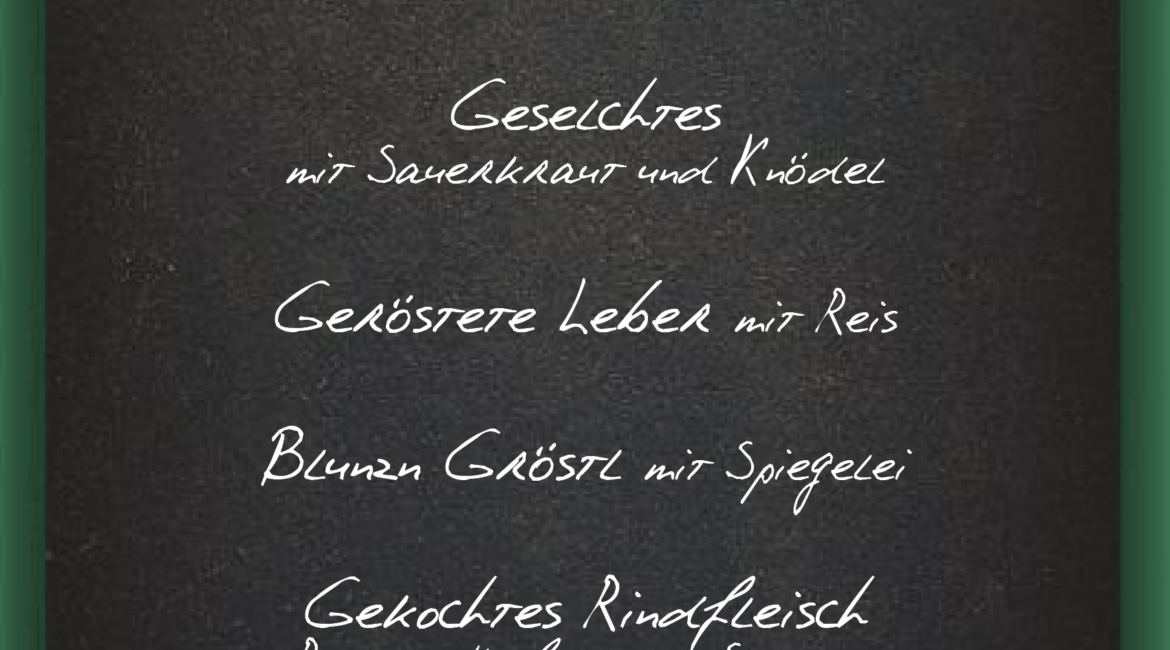 Geselchtes
mit Sauerkraut und Knödel
Geröstete Leber mit Reis
Blunzn Gröstl mit Spiegelei
Gekochtes Rindfleisch